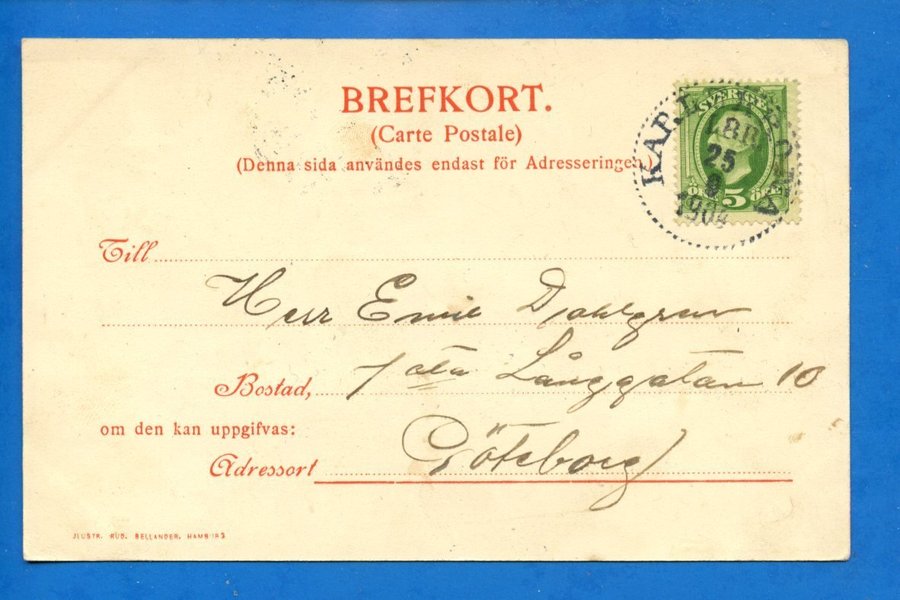 BREFKORT.
(Carte Postale)
(Denna sida användes endast för Adresseringen.)
SVERIGE
5
ÖRE
KARLSKRONA
LBR
25
1904
Till
Herr Emil Dahlgren
Bostad, 1sta Långgatan 10
om den kan uppgifvas:
Adressort Göteborg
ILLUSTR. RUD. BELLANDER,